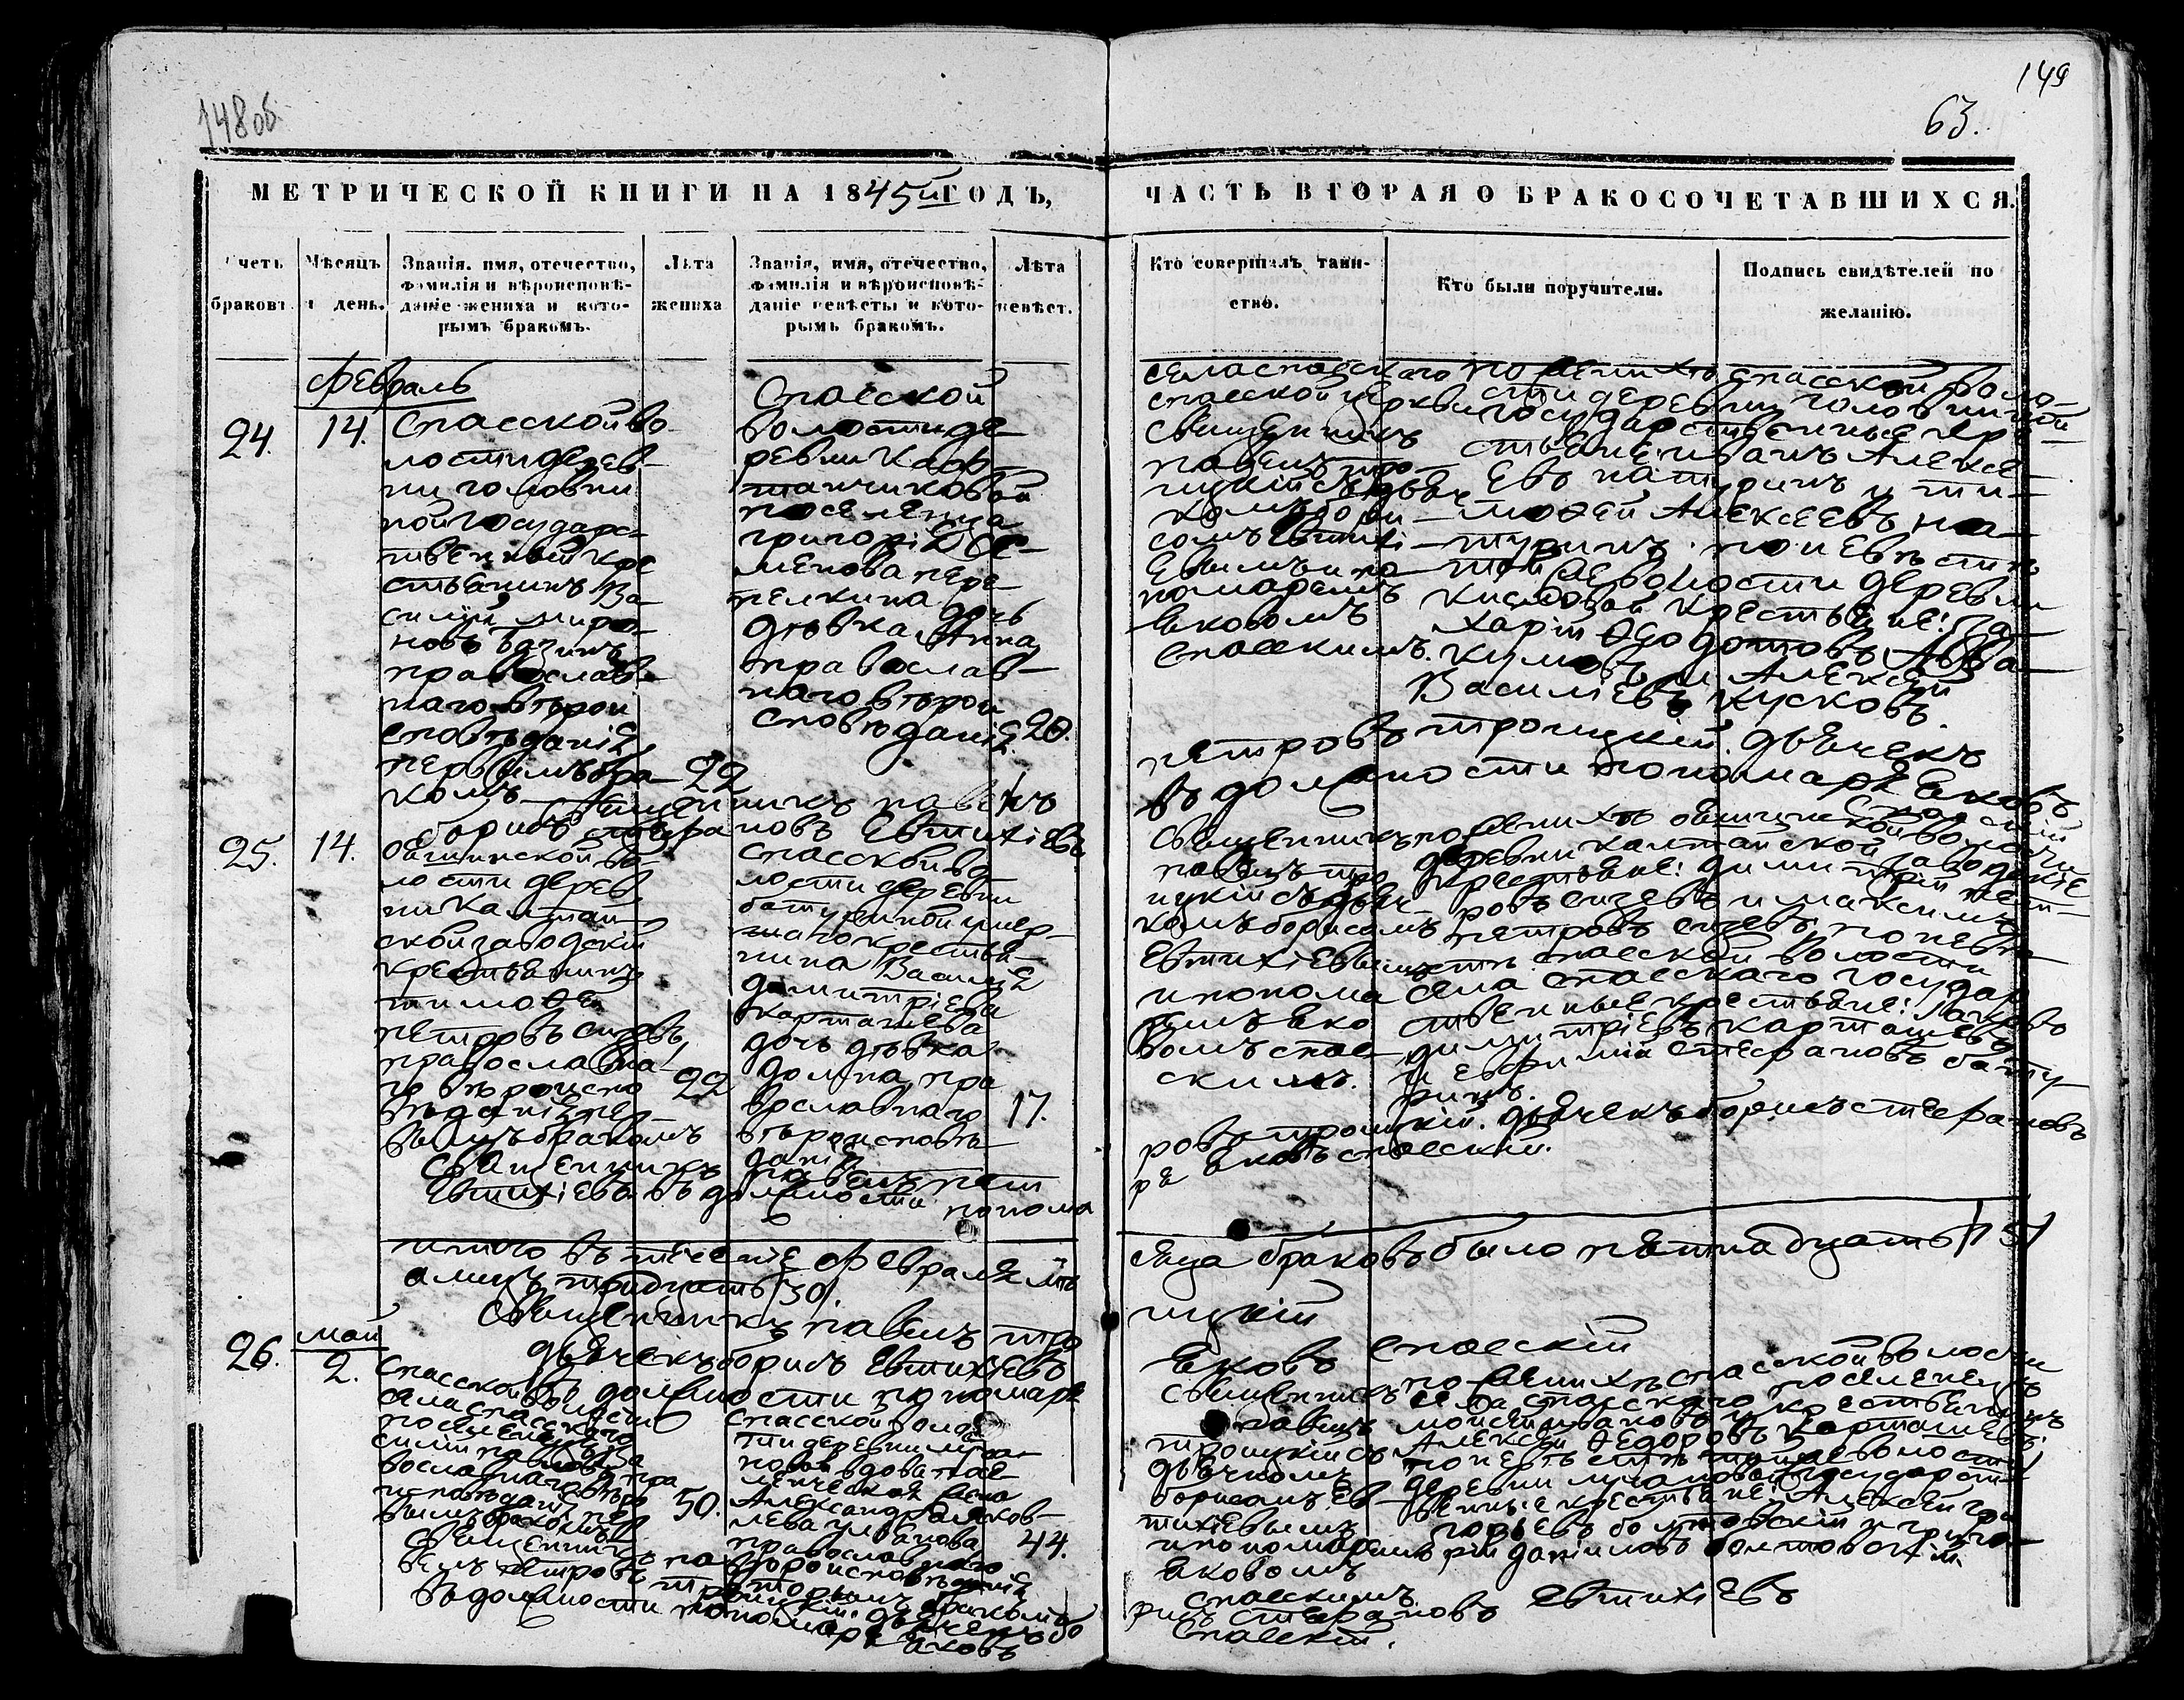 148об
149
63.
МЕТРИЧЕСКОЙ КНИГИ НА 1845й ГОДЪ,
ЧАСТЬ ВТОРАЯ О БРАКОСОЧЕТАВШИХСЯ.
Счетъ браковъ
Мѣсяцъ и день.
Званія, имя, отечество,
фамилія и вѣроисповѣ-
даніе жениха и кото-
рымъ бракомъ.
Лѣта
жениха
Званія, имя, отечество,
фамилія и вѣроисповѣ-
даніе невѣсты и кото-
рымъ бракомъ.
Лѣта
невѣст.
Кто совершалъ таин-
ство.
Кто были поручители.
Подпись свидѣтелей по
желанію.
Февраль
24.
14.
Спасской во-
лости дерев-
ни головни
ной государс-
твенный кре
стьянинъ Ва-
силій миро-
новъ
православ-
наго вѣрои
сповѣданія,
первымъ бра-
комъ
22
Спасской
волости де-
ревни Каф-
танчиковой
поселенца
григорія Се-
менова пере-
пелкина дочь
дѣвка Анна
православ-
наго вѣрои
сповѣданія.
20.
села спасскаго
спасской церкви
священникъ
павелъ тро-
ицкій съ дьяч
комъ бори-
сомъ евтихі-
евымъ и по-
номаремъ
яковомъ
спасскимъ.
по женихѣ спасской воло-
сти деревни головниной
государственные кре-
стьяне: иванъ Алексе-
евъ батуринъ и ти-
мофей Алексеевъ ба-
туринъ. по невѣстѣ
той же волости деревни
кисловой крестьяне: за-
харъ Ѳеодотовъ Авва-
кумовъ и Алексей
Василіевъ кусковъ.
Священникъ павелъ
петровъ троицкій. дьячекъ
борисъ стефановъ Евтихіевъ
въ должности пономаря яковъ
Спасскій
25.
14.
лости дерев
ни Калтай
ской заводскій
крестьянинъ
тимофей
петровъ сизевъ,
православна-
го вѣроиспо
вѣданія пер-
вымъ бракомъ
22
спасской во
лости деревни
батуриной умер-
шаго крестья-
нина Василія
димитріева
карташева
дочь дѣвка
домна, пра
вославнаго
вѣроисповѣ
данія
17.
Священникъ
павелъ тро
ицкій съ дьяч-
комъ борисомъ
Евтихіевымъ
и понома
ремъ яко
вомъ спас-
скимъ.
деревни калтайской заводскіе
крестьяне: димитрій пет-
ровъ сизевъ и максимъ
петровъ сизевъ, по невѣ-
стѣ спасской волости
села спасскаго государ
ственные крестьяне: яковъ
димитріевъ карташевъ
и ефимій стефановъ бату
ринъ.
Священникъ павелъ пет
ровъ троицкій. дьячекъ борисъ стефановъ
Евтихіевъ въ должности понома
ря яковъ спасскій.
итого въ теченіе февраля мѣ
сяца браковъ было пятнадцать /15/
а лицъ тридцать /30/.
Священникъ павелъ тро
ицкій
дьячекъ борисъ евтихіевъ
въ должности пономаря
яковъ спасскій
26.
май
2.
Спасской волости
села спасскаго
поселенецъ Ва
силій
вославнаго вѣро
исповѣданія пер
вымъ бракомъ
50.
Спасской воло
сти деревни
вдова посе-
ленческая жена
Александра яков-
лева
православнаго
вѣроисповѣданія
вторымъ бракомъ
44.
Священникъ
павелъ
троицкій съ
дьячкомъ
борисомъ ев-
тихіевымъ
и пономаремъ
яковомъ
спасскимъ
по женихѣ спасской волости
села спасскаго поселенецъ
мойсей ивановъ и крестьянинъ
Алексей Ѳедоровъ карташевъ;
по невѣстѣ той же волости
деревни государст-
венные крестьяне: Алексей гри
горьевъ болтовскій и григо-
рій даніиловъ болтовскій
Священникъ па
велъ петровъ троицкій. дьячекъ бо
рисъ стефановъ евтихіевъ
въ должности пономаря яковъ
Спасскій.